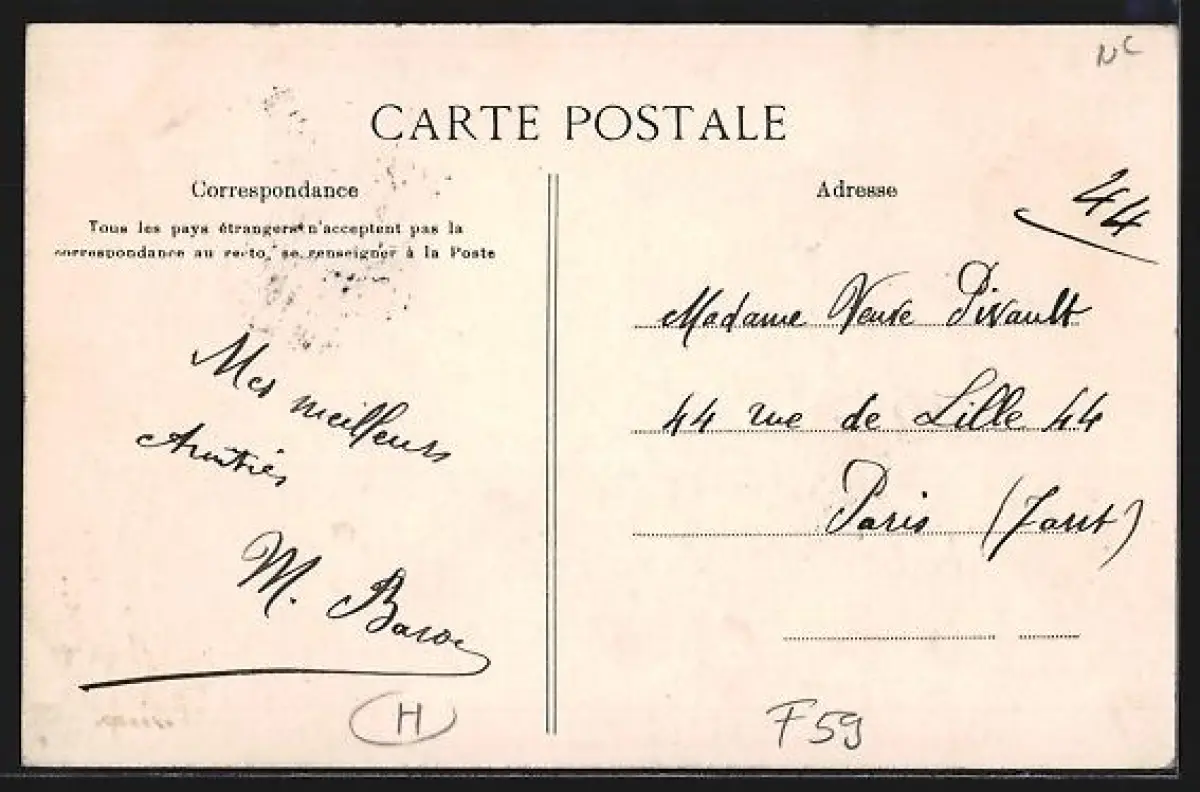 NC
CARTE POSTALE
Correspondance
Tous les pays étrangers n'acceptent pas la
correspondance au recto, se renseigner à la Poste
Mes meilleurs
Amitiés
M. Baron
H
Adresse
44
Madame Veuve Pivault
44 rue de Lille 44
Paris
F59